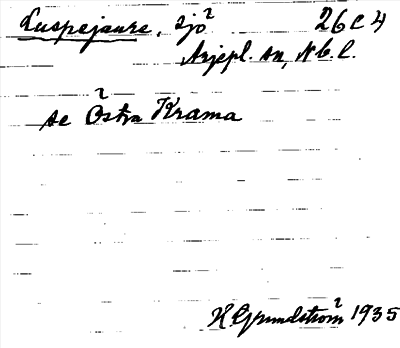 Luspejaure, sjö 26 C 4
Arjepl. sn, Nb. l.
se Östra Krama
H Grundström 1935